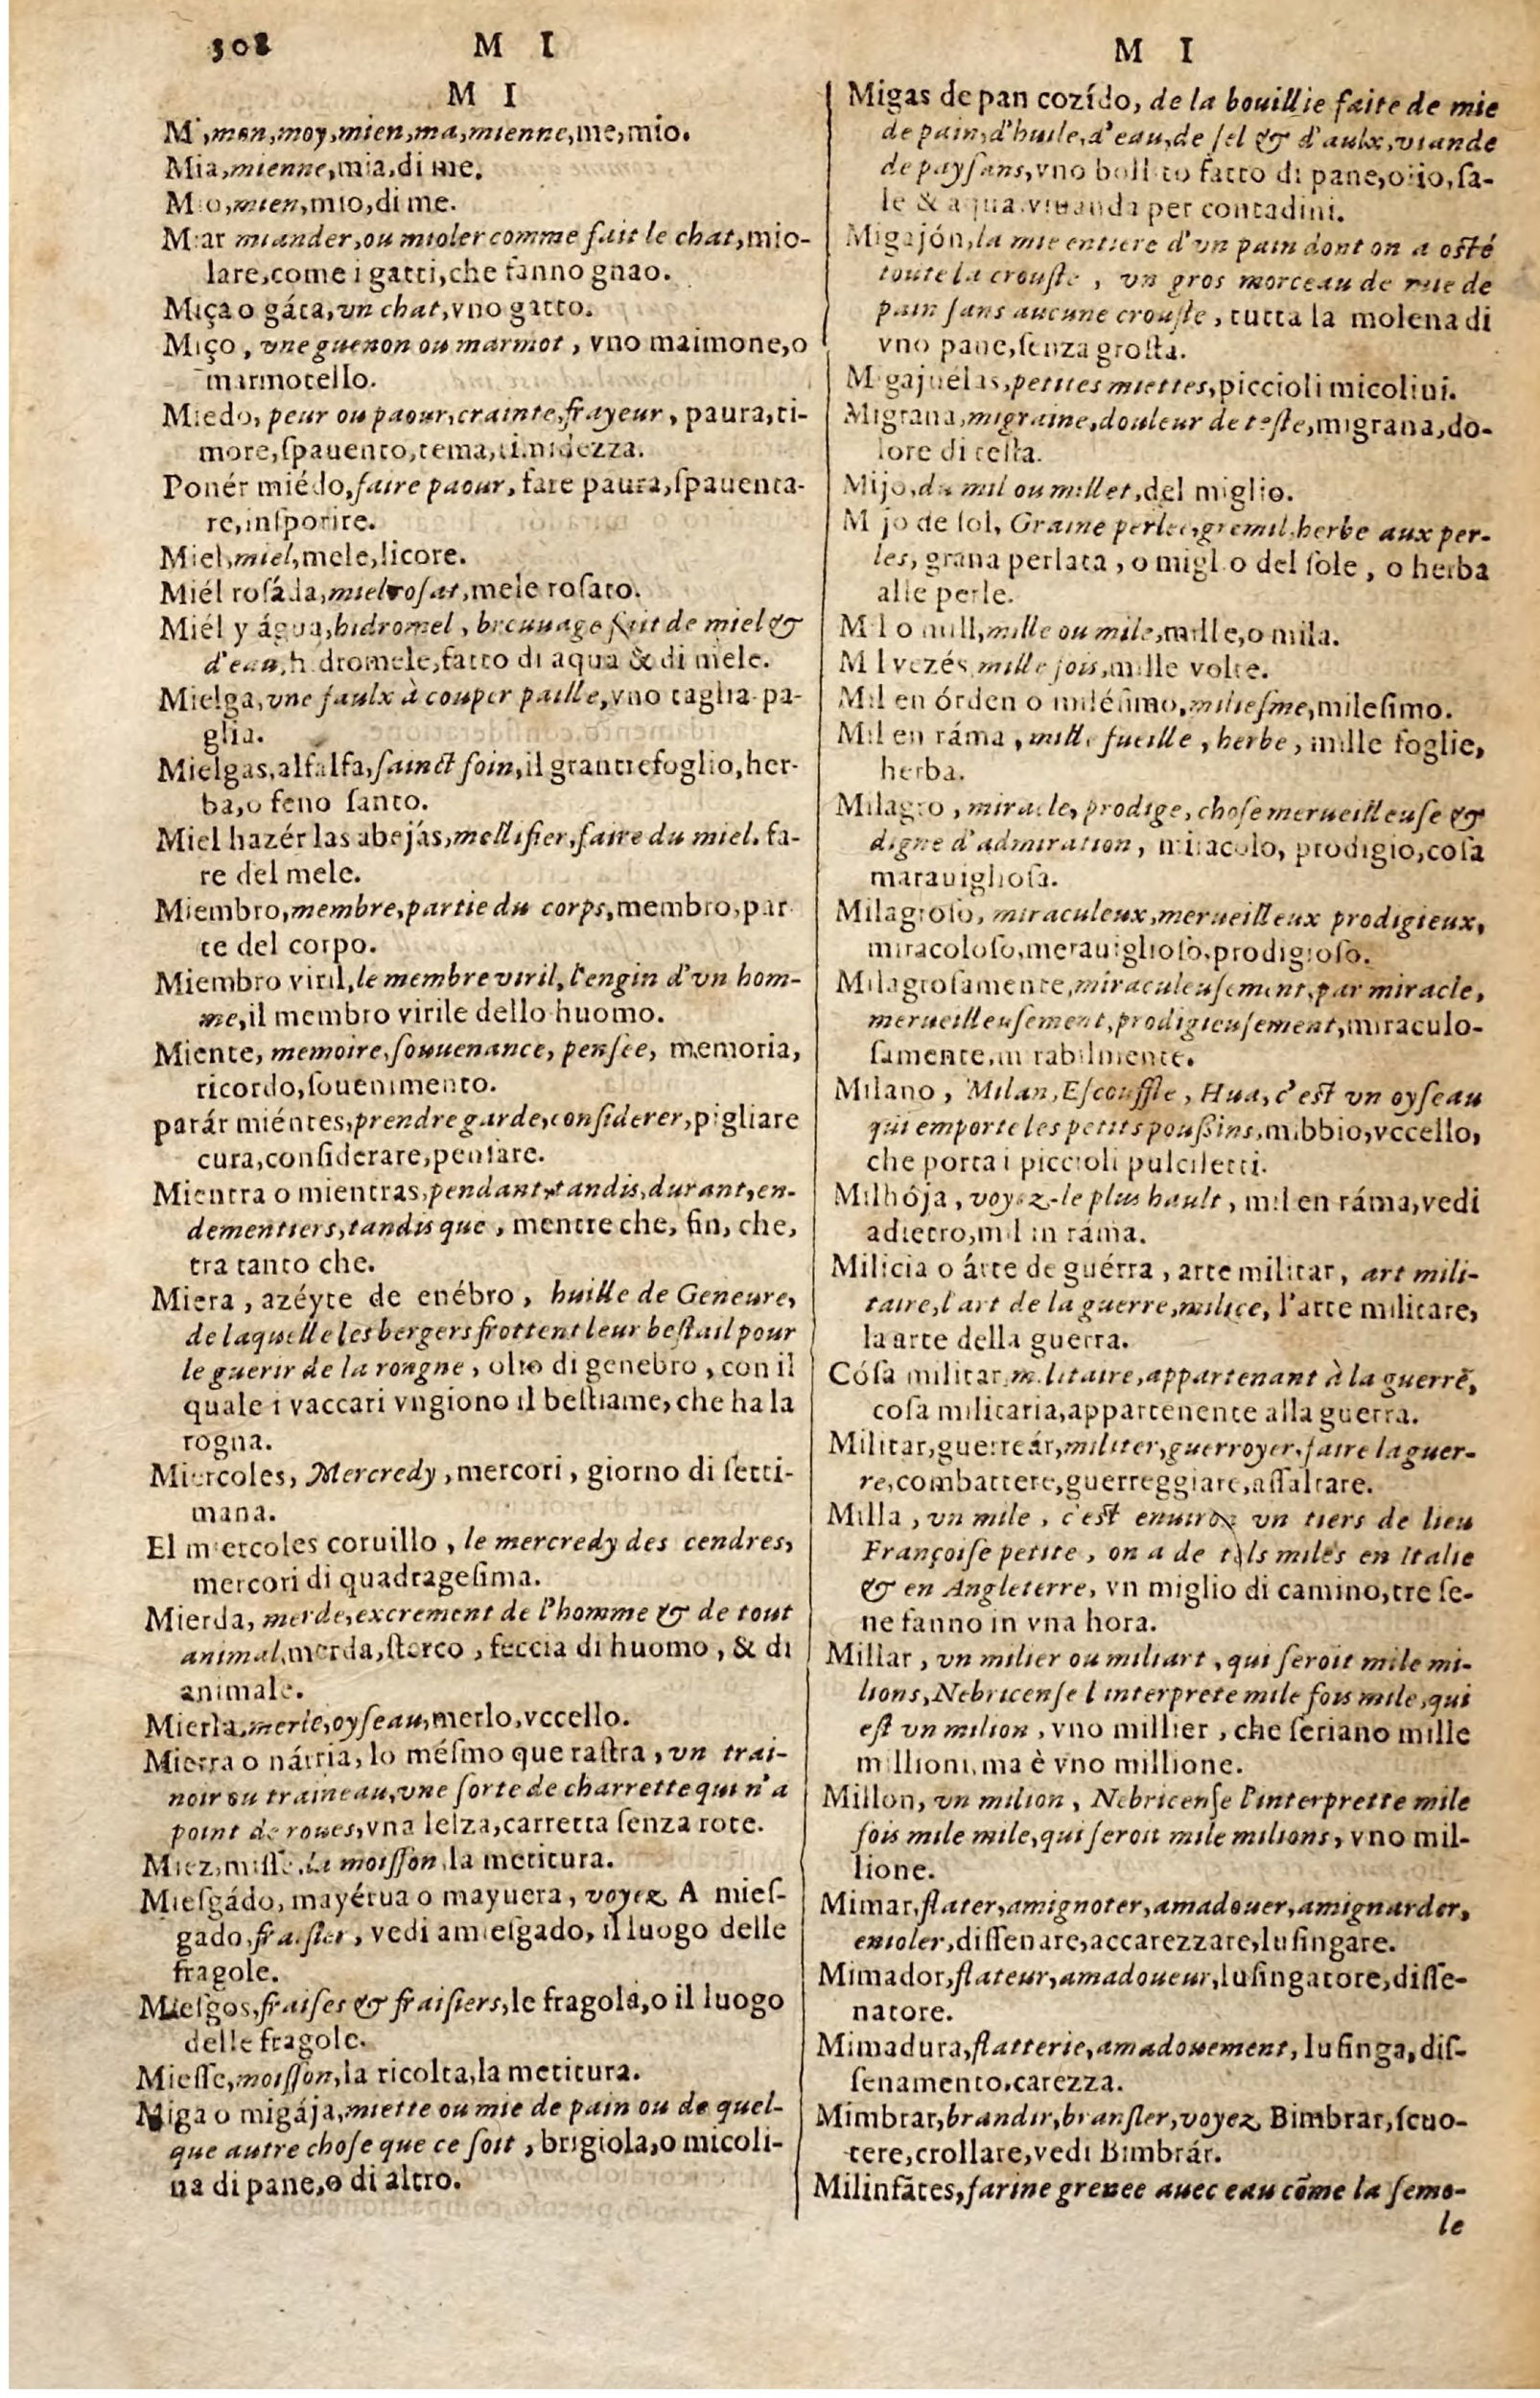 308 M I
M I
M I
M', mon, moy, mien, ma, mienne, me, mio.
Mia, mienne, mia, di me.
Mio, mien, mio, di me.
Miar miander, ou mioler comme fait le chat, mio-
lare, come i gatti, che fanno gnao.
Miça o gáta, vn chat, vno gatto.
Miço, vne guenon ou marmot, vno maimone, o
marmotello.
Miedo, peur ou paour, crainte, frayeur, paura, ti-
more, ſpauento, tema, timidezza.
Ponér miédo, faire paour, fare paura, ſpauenta-
re, inſporire.
Miel, miel, mele, licore.
Miél roſáda, miel roſat, mele roſato.
Miél y água, hidromel, breuuage fait de miel &
d'eau, hidromele, fatto di aqua & di mele.
Mielga, vne faulx à couper paille, vno taglia-pa-
glia.
Mielgas, alfalfa, ſainct foin, il grantrefoglio, her-
ba, o feno ſanto.
Miel hazér las abejás, mellifier, faire du miel. fa-
re del mele.
Miembro, membre, partie du corps, membro, par-
te del corpo.
Miembro viril, le membre viril, l'engin d'vn hom-
me, il membro virile dello huomo.
Miente, memoire, ſouuenance, penſée, memoria,
ricordo, ſouenimento.
parár miéntes, prendre garde, conſiderer, pigliare
cura, conſiderare, penſare.
Mientra o mientras, pendant, tandis, durant, en-
dementiers, tandis que, mentre che, fin, che,
tra tanto che.
Miera, azéyte de enébro, huille de Geneure,
de laquelle les bergers frottent leur beſtail pour
le guerir de la rongne, olio di genebro, con il
quale i vaccari vngiono il beſtiame, che ha la
rogna.
Miercoles, Mercredy, mercori, giorno di ſetti-
mana.
El miercoles coruillo, le mercredy des cendres,
mercori di quadrageſima.
Mierda, merde, excrement de l'homme & de tout
animal, merda, ſterco, feccia di huomo, & di
animale.
Mierla, merle, oyſeau, merlo, vccello.
Mierra o nárria, lo méſmo que raſtra, vn trai-
noir ou traineau, vne ſorte de charrette qui n'a
point de roues, vna leiza, carretta ſenza rote.
Miez, miſſe, la moiſſon, la metitura.
Mieſgádo, mayétua o mayuera, voyez A mieſ-
gado, fraiſier, vedi amieſgado, il luogo delle
fragole.
Mieſgos, fraiſes & fraiſiers, le fragole, o il luogo
delle fragole.
Mieſſe, moiſſon, la ricolta, la metitura.
Miga o migája, miette ou mie de pain ou de quel-
que autre choſe que ce ſoit, brigiola, o micoli-
na di pane, o di altro.
Migas de pan cozído, de la bouillie faite de mie
de pain, d'huile, d'eau, de ſel & d'aulx, viande
de payſans, vno bollito fatto di pane, olio, ſa-
le & aqua, viuanda per contadini.
Migajón, la mie entiere d'vn pain dont on a oſté
toute la crouſte, vn gros morceau de mie de
pain ſans aucune crouſte, tutta la molena di
vno pane, ſenza groſta.
Migajuelas, petites miettes, piccioli micolini.
Migrana, migraine, douleur de teſte, migrana, do-
lore di teſta.
Mijo, du mil ou millet, del miglio.
Mijo de ſol, Graine perlee, gremil, herbe aux per-
les, grana perlata, o miglio del ſole, o herba
alle perle.
Mil o mill, mille ou mile, mille, o mila.
Mil vezés, mille fois, mille volte.
Mil en órden o miléſimo, milieſme, mileſimo.
Mil en ráma, mille fueille, herbe, mille foglie,
herba.
Milagro, miracle, prodige, choſe merueilleuſe &
digne d'admiration, miracolo, prodigio, coſa
marauighoſa.
Milagroſo, miraculeux, merueilleux prodigieux,
miracoloſo, merauiglioſo, prodigioſo.
Milagroſamente, miraculeuſement, par miracle,
merueilleuſement, prodigieuſement, miraculo-
ſamente, mirabilmente.
Milano, Milan, Eſcouffle, Hua, c'eſt vn oyſeau
qui emporte les petits pouſſins, mibbio, vccello,
che porta i piccioli pulciletti.
Milhója, voyez-le plus hault, mil en ráma, vedi
adietro, mil in ráma.
Milicia o árte de guérra, arte militar, art mili-
taire, l'art de la guerre, milice, l'arte militare,
la arte della guerra.
Cóſa militar, militaire, appartenant à la guerre,
coſa militaria, appartenente alla guerra.
Militar, guerreár, militer, guerroyer, faire la guer-
re, combattere, guerreggiare, aſſaltare.
Milla, vn mile, c'eſt enuiron vn tiers de lieu
Françoiſe petite, on a de tels miles en Italie
& en Angleterre, vn miglio di camino, tre ſe-
ne fanno in vna hora.
Millar, vn milier ou miliart, qui ſeroit mile mi-
lions, Nebricenſe l interprete mile fois mile, qui
eſt vn milion, vno millier, che ſeriano mille
millioni, ma è vno millione.
Millon, vn milion, Nebricenſe l'interprette mile
fois mile mile, qui ſeroit mile milions, vno mil-
lione.
Mimar, flater, amignoter, amadouer, amignarder,
enioler, diſſenare, accarezzare, luſingare.
Mimador, flateur, amadoueur, luſingatore, diſſe-
natore.
Mimadura, flatterie, amadouement, luſinga, diſ-
ſenamento, carezza.
Mimbrar, brandir, branſler, voyez Bimbrar, ſcuo-
tere, crollare, vedi Bimbrár.
Milinfãtes, farine grenee auec eau cõme la ſemo-
le